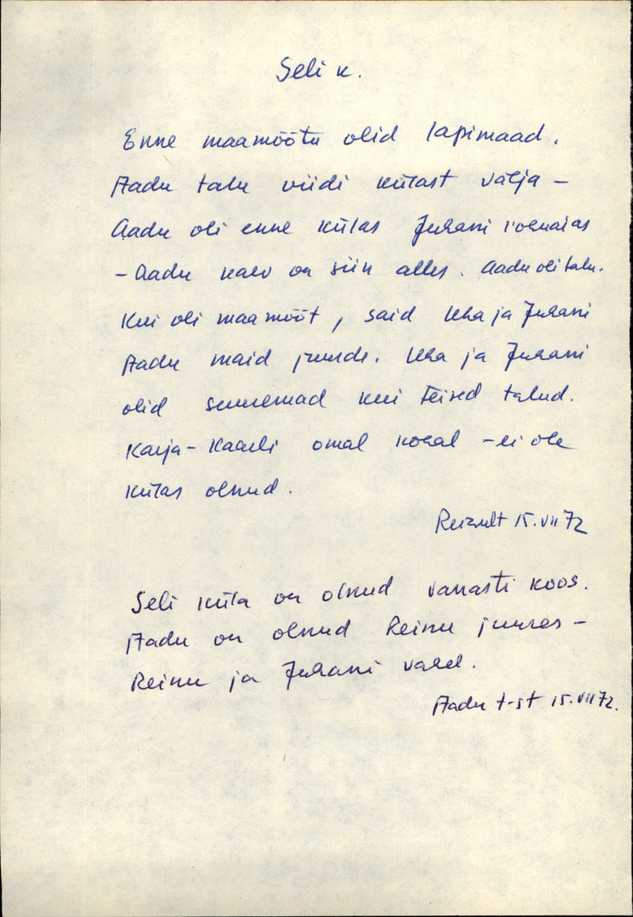 Seli k.
Enne maamõõtu olid lapimaad.
Aadu talu viidi külast välja –
Aadu oli enne külas Juhani
– Aadu kaev on siin alles. Aadu oli talu.
Kui oli maamõõt, said Uha ja Juhani
Aadu maid juurde. Uha ja Juhani
olid suuremad kui teised talud.
Karja-Kaarli omal kohal – ei ole
külas olnud.
15.VII 72
Seli küla on olnud vanasti koos.
Aadu on olnud Reinu juures –
Reinu ja Juhani vahel.
Aadu t-st 15.VII 72.